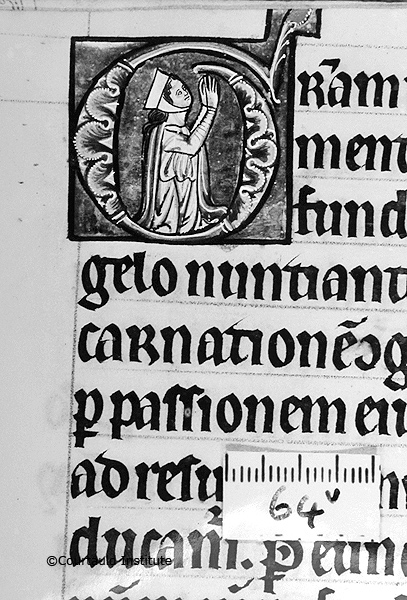 GR̄am
ment
fund
gelo nuntiant
caRnationē ꝯg
ꝑ paſſionem eiu
ad reſu
64v
ducam̄. ꝑ eund
©Courtauld Institute